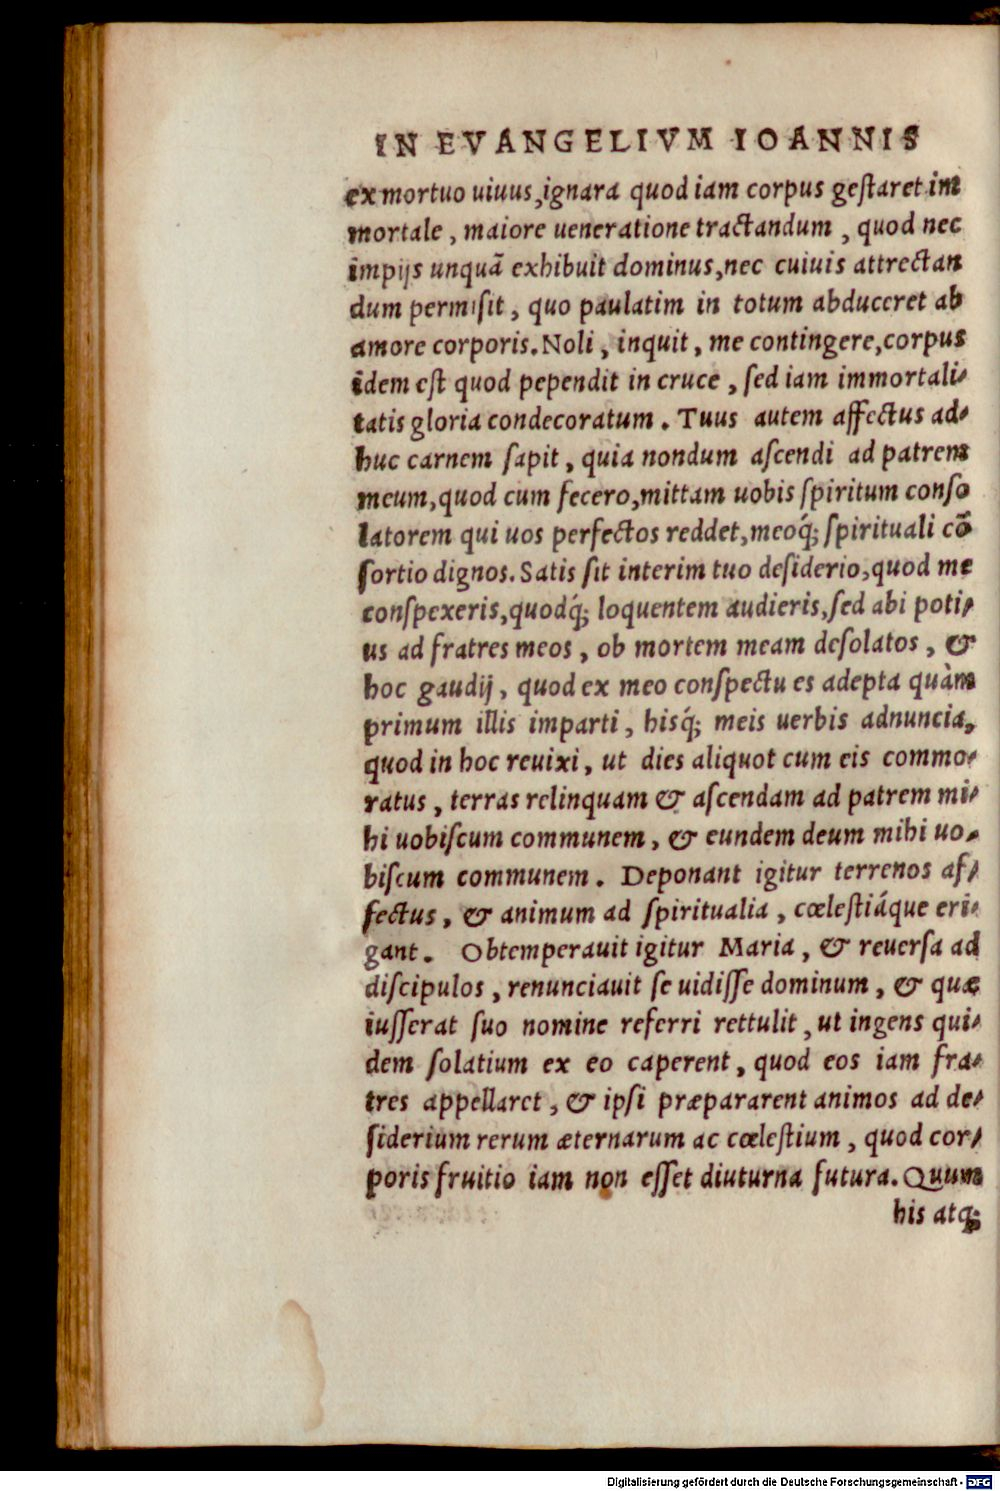 IN EVANGELIVM IOANNIS
ex mortuo uiuus, ignara quod iam corpus gestaret im
mortale, maiore ueneratione tractandum, quod nec
impijs unquã exhibuit dominus, nec cuiuis attrectan
dum permisit, quo paulatim in totum abduceret ab
amore corporis. Noli, inquit, me contingere, corpus
idem est quod pependit in cruce, sed iam immortali-
tatis gloria condecoratum. Tuus autem affectus ad-
huc carnem sapit, quia nondum ascendi ad patrem
meum, quod cum fecero, mittam uobis spiritum conso
latorem qui uos perfectos reddet, meoq́; spirituali cõ
sortio dignos. Satis sit interim tuo desiderio, quod me
conspexeris, quodq́; loquentem audieris, sed abi poti-
us ad fratres meos, ob mortem meam desolatos, &
hoc gaudij, quod ex meo conspectu es adepta quàm
primum illis imparti, hisq́; meis uerbis adnuncia,
quod in hoc reuixi, ut dies aliquot cum eis commo-
ratus, terras relinquam & ascendam ad patrem mi-
hi uobiscum communem, & eundem deum mihi uo-
biscum communem. Deponant igitur terrenos af-
fectus, & animum ad spiritualia, cœlestiáque eri-
gant. Obtemperauit igitur Maria, & reuersa ad
discipulos, renunciauit se uidisse dominum, & quæ
iusserat suo nomine referri rettulit, ut ingens qui-
dem solatium ex eo caperent, quod eos iam fra-
tres appellaret, & ipsi præpararent animos ad de-
siderium rerum æternarum ac cœlestium, quod cor-
poris fruitio iam non esset diuturna futura. Quum
his atq;
Digitalisierung gefördert durch die Deutsche Forschungsgemeinschaft - DFG